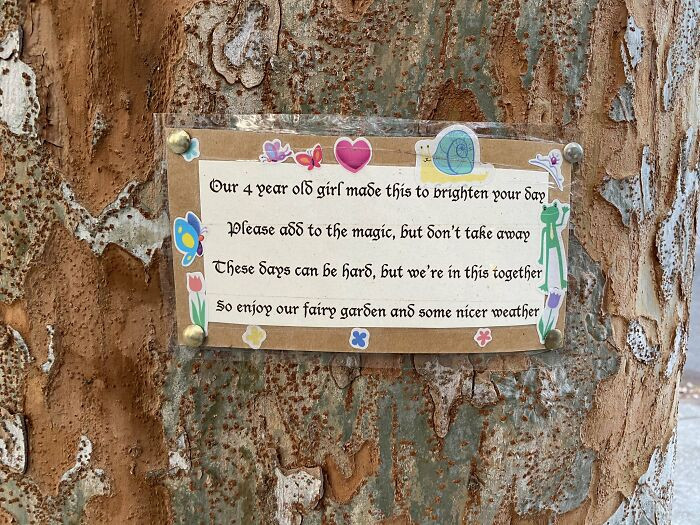 Our 4 year old girl made this to brighten your day
Please add to the magic, but don't take away
These days can be hard, but we're in this together
So enjoy our fairy garden and some nicer weather